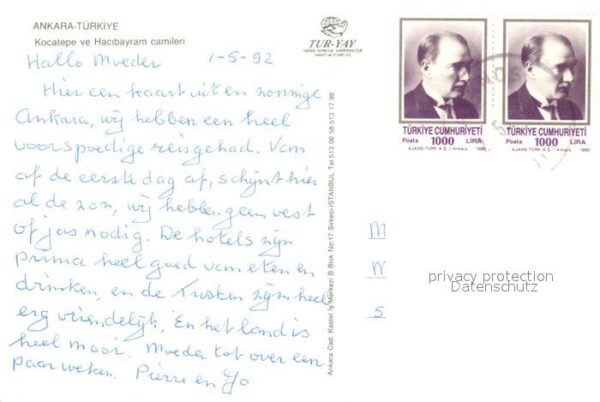 ANKARA-TÜRKİYE
Kocatepe ve Hacıbayram camileri
Hallo Moeder 1-5-92
Hier een kaart uit en zonnige
Ankara, wij hebben een heel
voorspoedige reis gehad. Van
af de eerste dag af, schijnt hier
al de zon, wij hebben geen vest
of jas nodig. De hotels zijn
prima heel goed van eten en
drinken, en de Turken zijn heel
erg vriendelijk. En het land is
heel mooi. Moeder tot over een
paar weken. Pierre en Jo
TUR-YAY
Ankara Cad. Kastel İş Merkezi B Blok No:17 Sirkeci-İSTANBUL Tel:513 06 58-513 17 96
TÜRKİYE CUMHURİYETİ
Posta 1000 LİRA
AJANS-TÜRK A.Ş. / Ankara 1990
TÜRKİYE CUMHURİYETİ
Posta 1000 LİRA
AJANS-TÜRK A.Ş. / Ankara 1990
M
W
S
privacy protection
Datenschutz